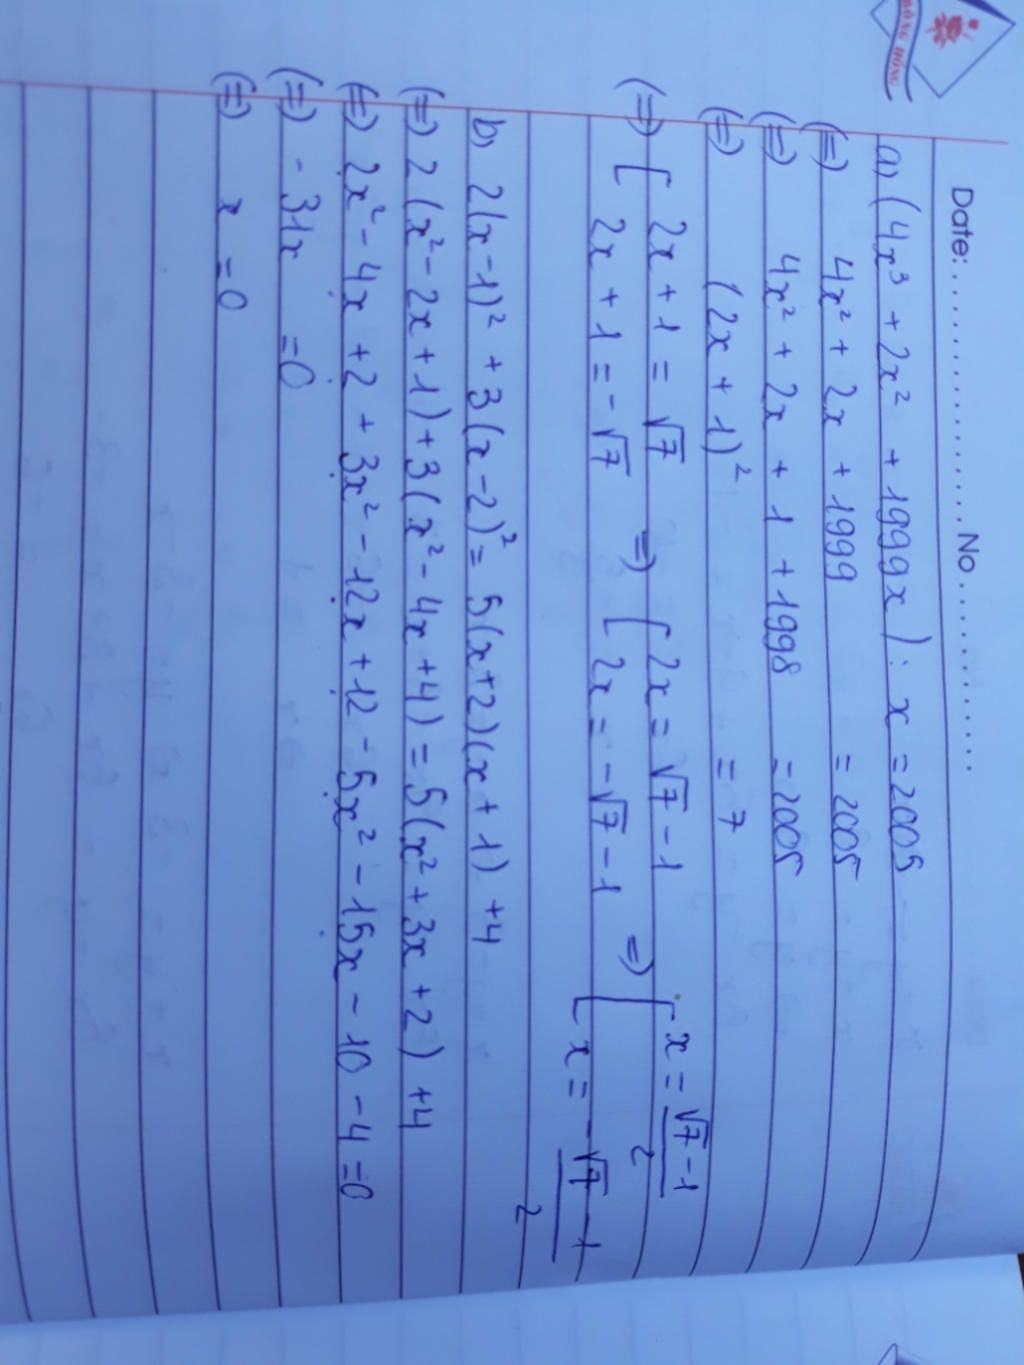 BÔNG HỒNG
Date: ........................ No ....................
a) (4x³ + 2x² + 1999x) : x = 2005
(=) 4x² + 2x + 1999 = 2005
(=) 4x² + 2x + 1 + 1998 = 2005
(=) (2x + 1)² = 7
(=) [ 2x + 1 = √7 => [ 2x = √7 - 1 => [ x = (√7 - 1)/2
2x + 1 = -√7 2x = -√7 - 1 x = (-√7 - 1)/2
b) 2(x - 1)² + 3(x - 2)² = 5(x + 2)(x + 1) + 4
(=) 2(x² - 2x + 1) + 3(x² - 4x + 4) = 5(x² + 3x + 2) + 4
(=) 2x² - 4x + 2 + 3x² - 12x + 12 - 5x² - 15x - 10 - 4 = 0
(=) - 31x = 0
(=) x = 0